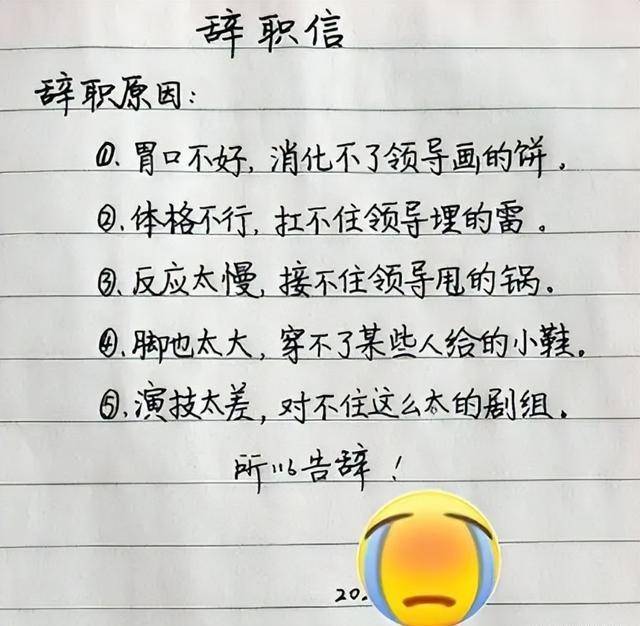 辞职信
辞职原因:
①.胃口不好,消化不了领导画的饼。
②.体格不行,扛不住领导埋的雷。
③.反应太慢,接不住领导甩的锅。
④.脚也太大,穿不了某些人给的小鞋。
⑤.演技太差,对不住这么大的剧组。
所以告辞!
20.